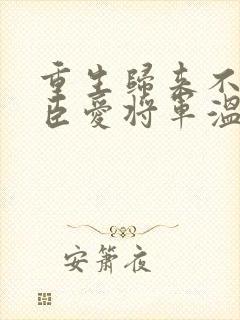 重生歸來不
臣愛將軍溫
安簫夜